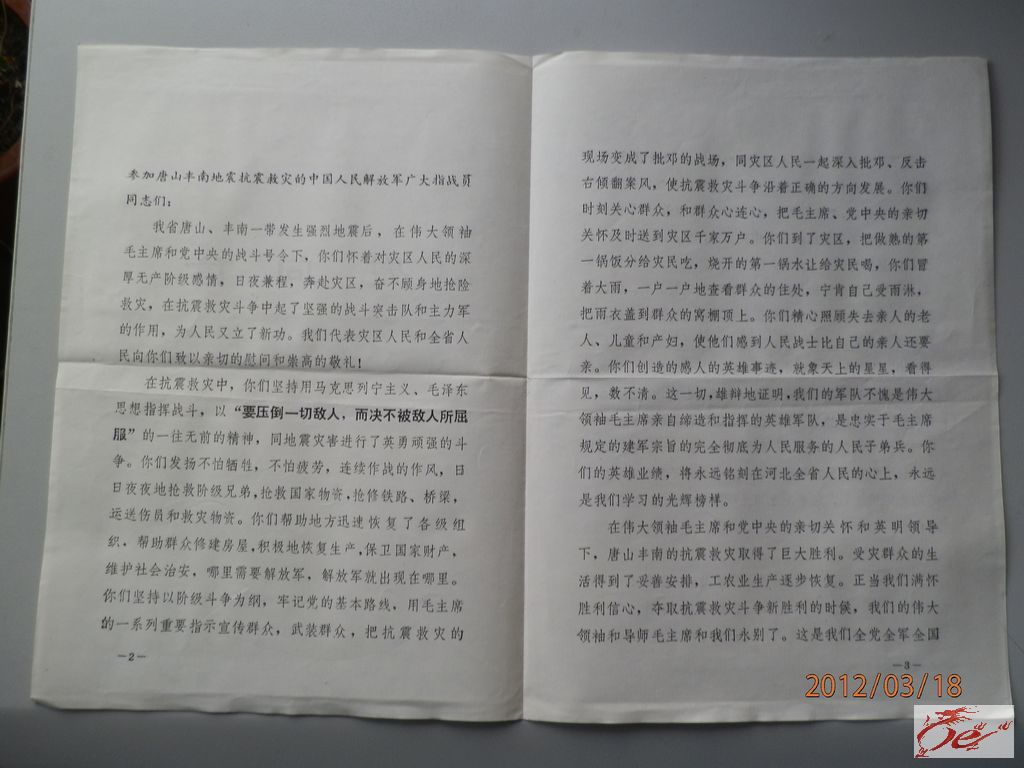 参加唐山丰南地震抗震救灾的中国人民解放军广大指战员
同志们：
我省唐山、丰南一带发生强烈地震后，在伟大领袖
毛主席和党中央的战斗号令下，你们怀着对灾区人民的深
厚无产阶级感情，日夜兼程，奔赴灾区，奋不顾身地抢险
救灾，在抗震救灾斗争中起了坚强的战斗突击队和主力军
的作用，为人民又立了新功。我们代表灾区人民和全省人
民向你们致以亲切的慰问和崇高的敬礼！
在抗震救灾中，你们坚持用马克思列宁主义、毛泽东
思想指挥战斗，以“要压倒一切敌人，而决不被敌人所屈
服”的一往无前的精神，同地震灾害进行了英勇顽强的斗
争。你们发扬不怕牺牲，不怕疲劳，连续作战的作风，日
日夜夜地抢救阶级兄弟，抢救国家物资，抢修铁路、桥梁，
运送伤员和救灾物资。你们帮助地方迅速恢复了各级组
织，帮助群众修建房屋，积极地恢复生产，保卫国家财产，
维护社会治安，哪里需要解放军，解放军就出现在哪里。
你们坚持以阶级斗争为纲，牢记党的基本路线、用毛主席
的一系列重要指示宣传群众，武装群众，把抗震救灾的
—2—
现场变成了批邓的战场，同灾区人民一起深入批邓、反击
右倾翻案风，使抗震救灾斗争沿着正确的方向发展。你们
时刻关心群众，和群众心连心，把毛主席、党中央的亲切
关怀及时送到灾区千家万户。你们到了灾区，把做熟的第
一锅饭分给灾民吃，烧开的第一锅水让给灾民喝，你们冒
着大雨，一户一户地查看群众的住处，宁肯自己受雨淋，
把雨衣盖到群众的窝棚顶上。你们精心照顾失去亲人的老
人、儿童和产妇，使他们感到人民战士比自己的亲人还要
亲。你们创造的感人的英雄事迹，就象天上的星星，看得
见，数不清。这一切，雄辩地证明，我们的军队不愧是伟大
领袖毛主席亲自缔造和指挥的英雄军队，是忠实于毛主席
规定的建军宗旨的完全彻底为人民服务的人民子弟兵。你
们的英雄业绩，将永远铭刻在河北全省人民的心上，永远
是我们学习的光辉榜样。
在伟大领袖毛主席和党中央的亲切关怀和英明领导
下，唐山丰南的抗震救灾取得了巨大胜利。受灾群众的生
活得到了妥善安排，工农业生产逐步恢复。正当我们满怀
胜利信心，夺取抗震救灾斗争新胜利的时候，我们的伟大
领袖和导师毛主席和我们永别了。这是我们全党全军全国
—3—
2012/03/18